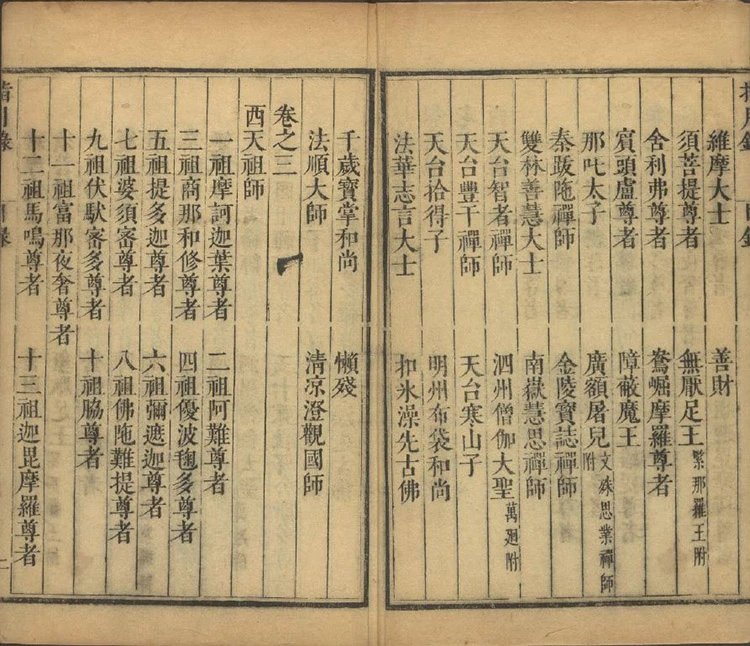 指月錄 目錄
維摩大士 善財
須菩提尊者 無厭足王 緊那羅王附
舍利弗尊者 鴦崛摩羅尊者
賓頭盧尊者 障蔽魔王
那吒太子 廣額屠兒 文殊思業禪師附
秦跋陁禪師 金陵寶誌禪師
雙林善慧大士 南嶽慧思禪師
天台智者禪師 泗州僧伽大聖 萬廻附
天台豐干禪師 天台寒山子
天台拾得子 明州布袋和尚
法華志言大士 扣氷澡先古佛
千歲寶掌和尚 懶殘
法順大師 清凉澄觀國師
卷之三
西天祖師
一祖摩訶迦葉尊者 二祖阿難尊者
三祖商那和修尊者 四祖優波毱多尊者
五祖提多迦尊者 六祖彌遮迦尊者
七祖婆須密尊者 八祖佛陁難提尊者
九祖伏馱密多尊者 十祖脇尊者
十一祖富那夜奢尊者
十二祖馬鳴尊者 十三祖迦毘摩羅尊者
指月錄 目錄